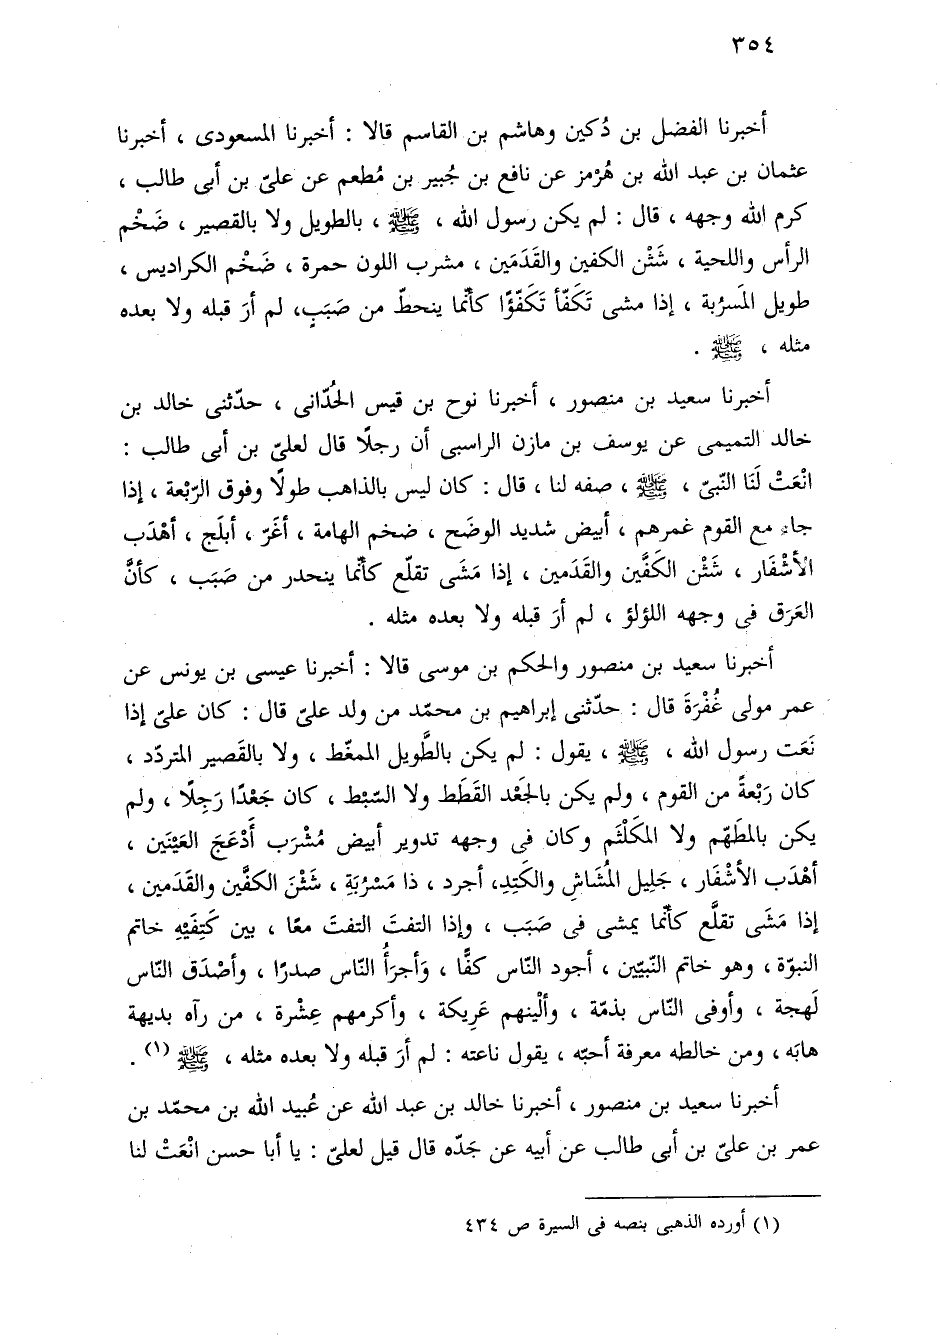 ٣٥٤
أخبرنا الفضل بن دُكين وهاشم بن القاسم قالا : أخبرنا المسعودى ، أخبرنا
عثمان بن عبد الله بن هُرْمز عن نافع بن جُبير بن مُطعم عن علىّ بن أبى طالب ،
كرم الله وجهه ، قال : لم يكن رسول الله ، ﷺ ، بالطويل ولا بالقصير ، ضَخْم
الرأس واللحية ، شَثْن الكفين والقَدَمين ، مشرب اللون حمرة ، ضَخْم الكراديس ،
طويل المَسرُبة ، إذا مشى تَكَفّأ تَكَفّؤًا كأنّما ينحطّ من صَبَبٍ، لم أرَ قبله ولا بعده
مثله ، ﷺ .
أخبرنا سعيد بن منصور ، أخبرنا نوح بن قيس الحُدّانى ، حدّثنى خالد بن
خالد التميمى عن يوسف بن مازن الراسبى أن رجلًا قال لعلىّ بن أبى طالب :
انْعَتْ لَنَا النّبىّ ، ﷺ ، صفه لنا ، قال : كان ليس بالذاهب طولًا وفوق الرّبْعة ، إذا
جاء مع القوم غمرهم ، أبيض شديد الوضَح ، ضخم الهامة ، أغَرّ ، أبلَج ، أهْدَب
الأشْفَار ، شَثْن الكَفَّين والقَدَمين ، إذا مَشَى تقلّع كأنّما ينحدر من صَبَب ، كأنَّ
العَرَق فى وجهه اللؤلؤ ، لم أرَ قبله ولا بعده مثله .
أخبرنا سعيد بن منصور والحكم بن موسى قالا : أخبرنا عيسى بن يونس عن
عمر مولى غُفْرَةَ قال : حدّثنى إبراهيم بن محمّد من ولد علىّ قال : كان علىّ إذا
نَعَت رسول الله ، ﷺ ، يقول : لم يكن بالطَّويل الممغّط ، ولا بالقَصير المتردّد ،
كان رَبْعةً من القوم ، ولم يكن بالجَعْد القَطَط ولا السّبْط ، كان جَعْدًا رَجِلًا ، ولم
يكن بالمطَهّم ولا المكَلْثَم وكان فى وجهه تدوير أبيض مُشْرَب أدْعَجَ العيْنَين ،
أهْدَب الأشْفَار ، جَلِيل المُشَاشِ والكَتِدِ، أجرد ، ذا مَسْرُبَةِ ، شَثْنَ الكفَّين والقَدَمين ،
إذا مَشَى تقلَّع كأنّما يمشى فى صَبَب ، وإذا التفتَ التفتَ معًا ، بين كَتِفَيْهِ خاتم
النبوّة ، وهو خاتم النّبيّين ، أجود النّاس كفًّا ، وَأجرَأُ النّاس صدرًا ، وأصْدَق النّاس
لَهجة ، وأوفى النّاس بذمّة ، وألْينهم عَرِيكة ، وأكرمهم عِشْرة ، من رآه بديهة
هابَه ، ومن خالطه معرفة أحبّه ، يقول ناعته : لم أرَ قبله ولا بعده مثله ، ﷺ (١) .
أخبرنا سعيد بن منصور ، أخبرنا خالد بن عبد الله عن عُبيد الله بن محمّد بن
عمر بن علىّ بن أبى طالب عن أبيه عن جَدّه قال قيل لعلىّ : يا أبا حسن انْعَتْ لنا
(١) أورده الذهبى بنصه فى السيرة ص ٤٣٤